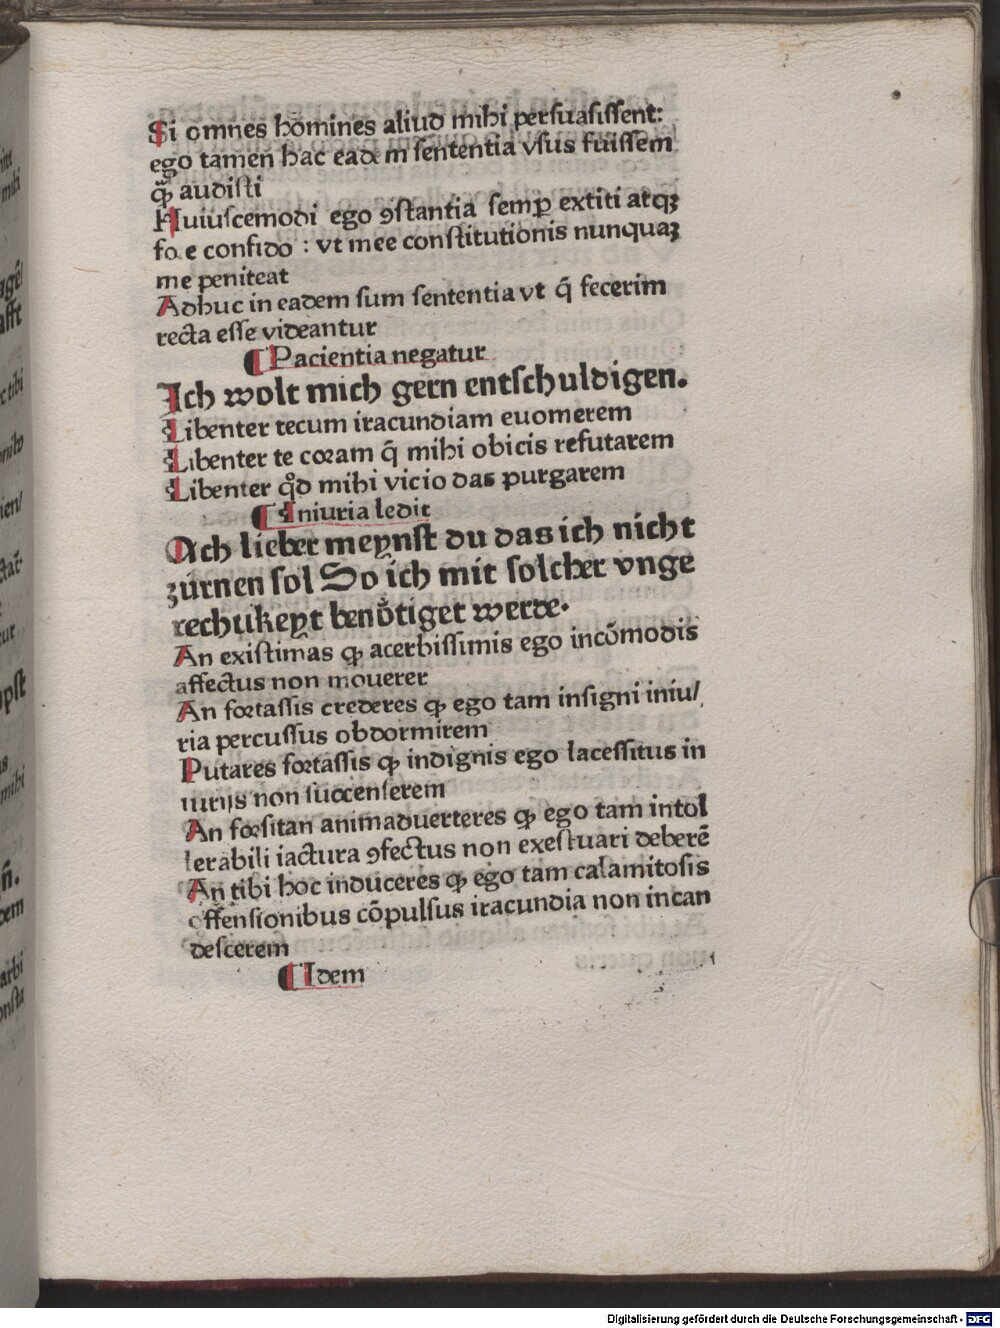 Si omnes homines aliud mihi persuasissent:
ego tamen hac eadem sententia vsus fuissem
qͣꝫ audisti
Huiuscemodi ego ꝯstantia semꝑ extiti atqꝫ
fore confido : vt mee constitutionis nunquaꝫ
me peniteat
Adhuc in eadem sum sententia vt q̄ fecerim
recta esse videantur
¶ Pacientia negatur
Ich wolt mich gern entschuldigen.
Libenter tecum iracundiam euomerem
Libenter te coram q̄ mihi obicis refutarem
Libenter qd̓ mihi vicio das purgarem
¶ Iniuria ledit
Ach lieber meynst du das ich nicht
zürnen sol So ich mit solcher vnge
rechtikeyt benoͤtiget werde.
An existimas ꝙ acerbissimis ego incōmodis
affectus non mouerer
An fortassis crederes ꝙ ego tam insigni iniu/
ria percussus obdormirem
Putares fortassis ꝙ indignis ego lacessitus in
iurijs non succenserem
An forsitan animaduerteres ꝙ ego tam intol
lerabili iactura ꝯfectus non exestuari deberē
An tibi hoc induceres ꝙ ego tam calamitosis
offensionibus cōpulsus iracundia non incan
descerem
¶ Idem
Digitalisierung gefördert durch die Deutsche Forschungsgemeinschaft - DFG